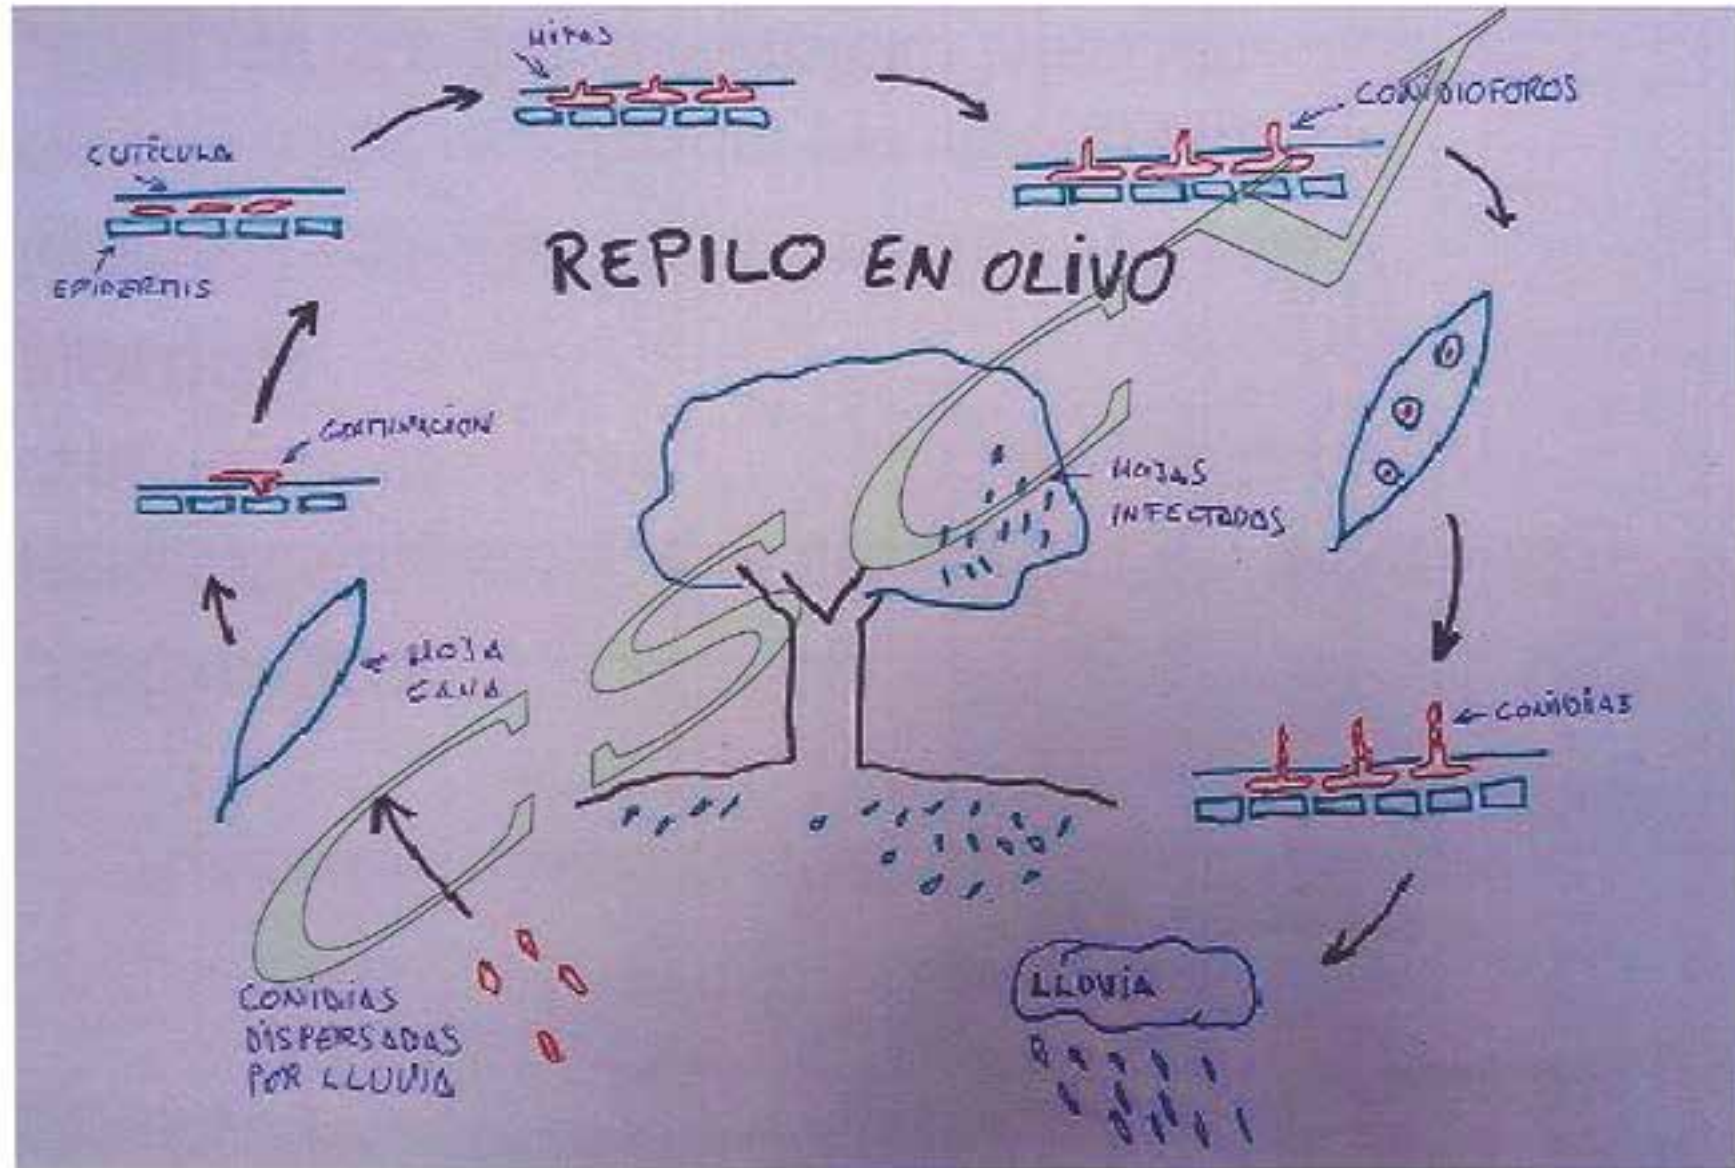 HIFAS
CONIDIOFOROS
CUTÍCULA
EPIDERMIS
REPILO EN OLIVO
GERMINACION
HOJAS
INFECTADAS
HOJA
SANA
CONIDIAS
LLUVIA
CONIDIAS
DISPERSADAS
POR LLUVIA
CSCV